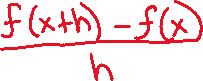 f(x+h) - f(x)
h